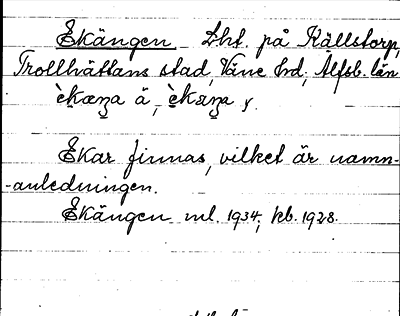 Ekängen Lht. på Källstorp,
Trollhättans stad, Väne hd, Älfsb. län
èkæŋa ä, èkæŋa y.
Ekar finnas, vilket är namn-
-anledningen.
Ekängen ml. 1934, kb. 1928.